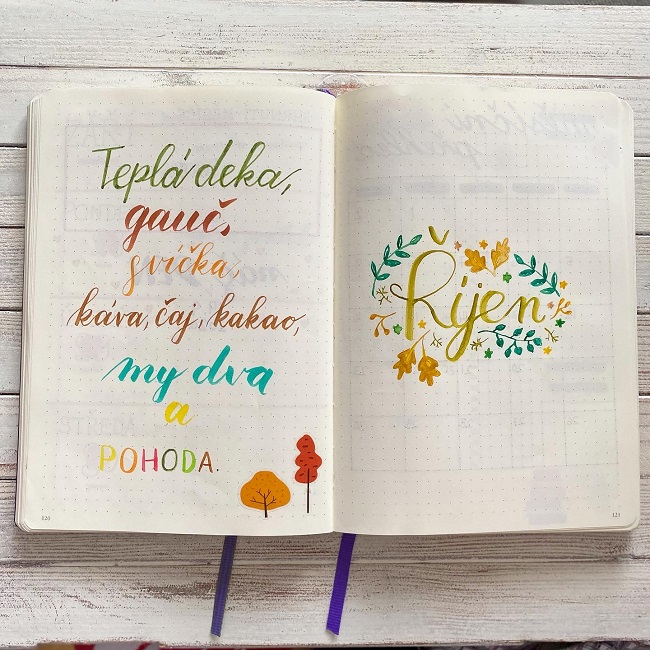 Teplá deka,
gauč,
svíčka,
káva, čaj, kakao,
my dva
a
POHODA.
120
Říjen
121